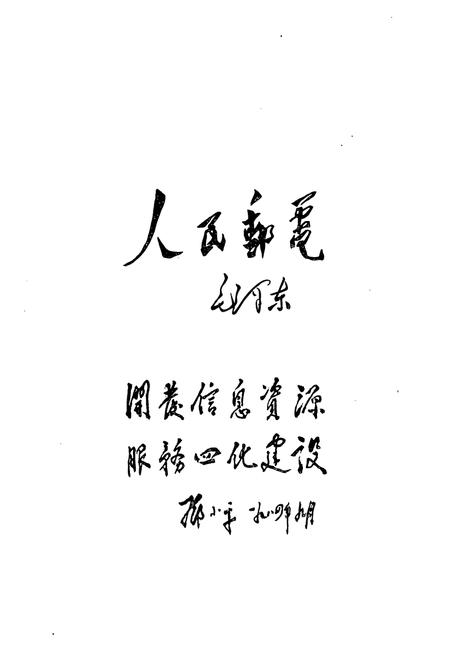 人民郵電
毛泽东
開發信息資源
服務四化建設
邓小平 一九八四年九月